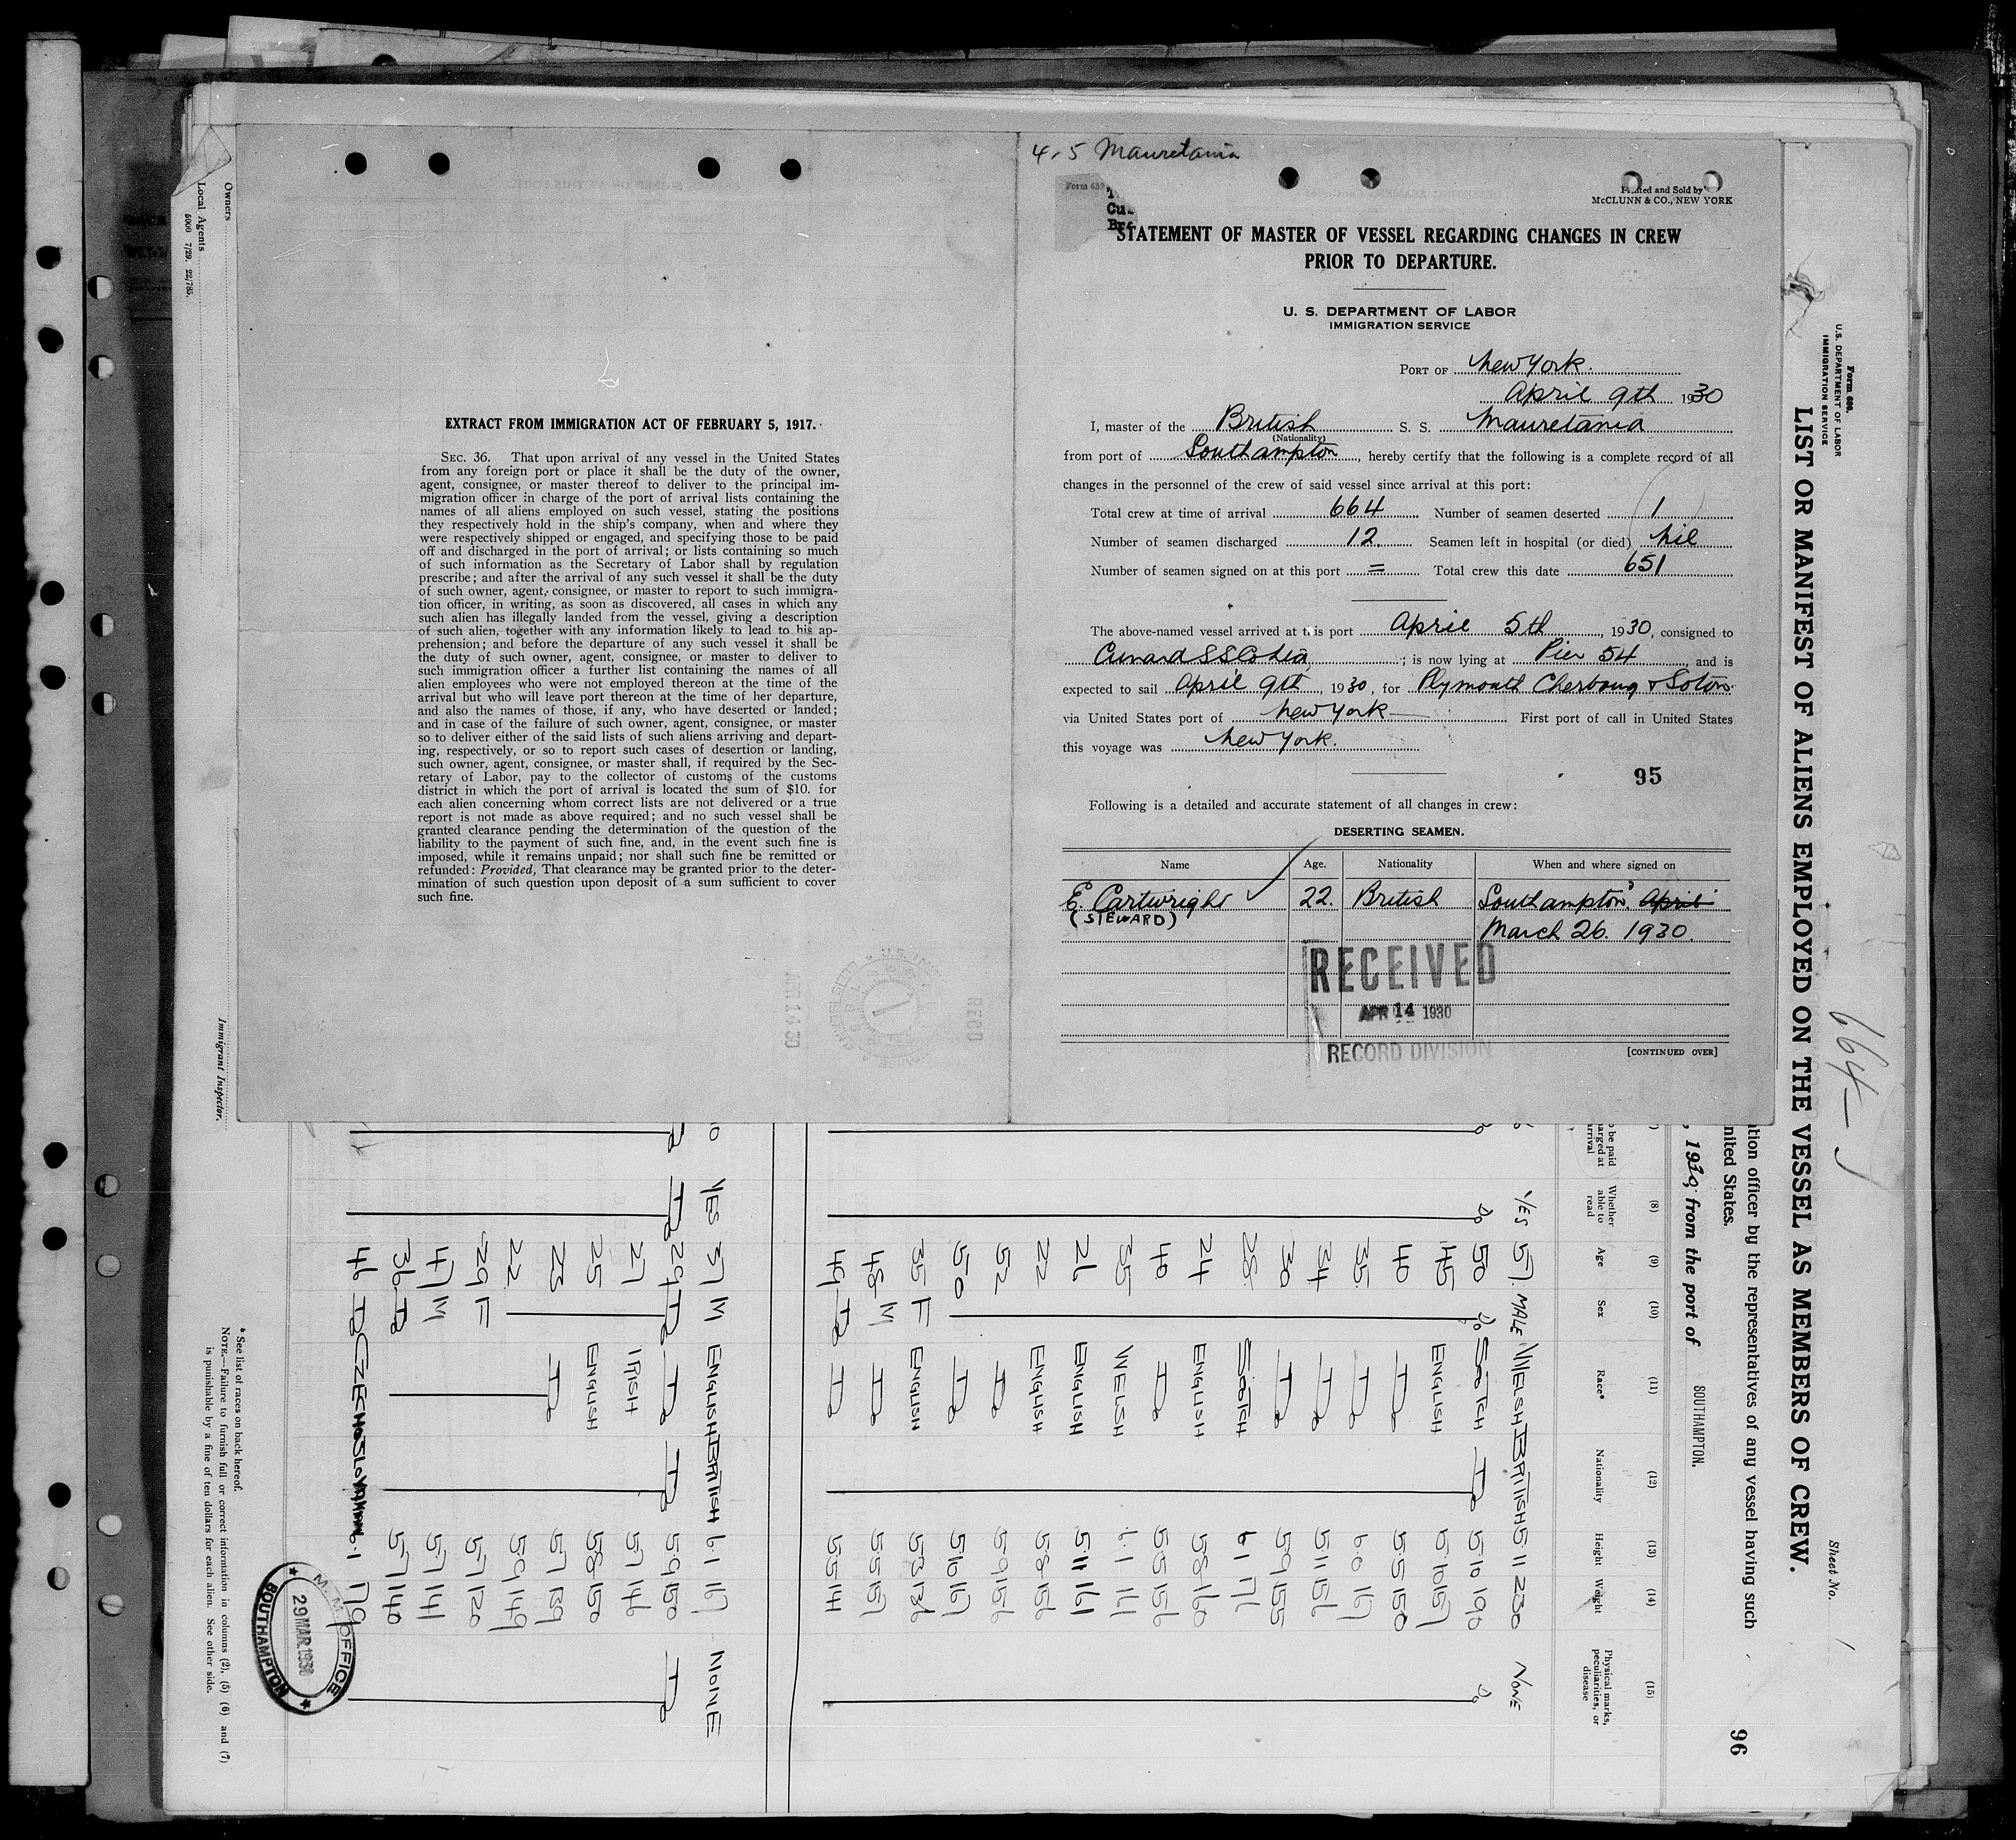 4-5 Mauretania
Form 689
Printed and Sold by
McCLUNN & CO., NEW YORK
STATEMENT OF MASTER OF VESSEL REGARDING CHANGES IN CREW
PRIOR TO DEPARTURE.
U. S. DEPARTMENT OF LABOR
IMMIGRATION SERVICE
PORT OF New York.
April 9th 1930
I, master of the British S. S. Mauretania
(Nationality)
from port of Southampton, hereby certify that the following is a complete record of all
changes in the personnel of the crew of said vessel since arrival at this port:
Total crew at time of arrival 664 Number of seamen deserted 1
Number of seamen discharged 12. Seamen left in hospital (or died) Nil
Number of seamen signed on at this port = Total crew this date 651
The above-named vessel arrived at this port April 5th, 1930, consigned to
Cunard SS Co Ltd; is now lying at Pier 54, and is
expected to sail April 9th, 1930, for Plymouth Cherbourg & Soton
via United States port of New York First port of call in United States
this voyage was New York.
95
Following is a detailed and accurate statement of all changes in crew:
DESERTING SEAMEN.
Name Age. Nationality When and where signed on
E. Cartwright 22. British Southampton. April
(STEWARD) March 26. 1930.
RECEIVED
APR 14 1930
RECORD DIVISION
[CONTINUED OVER]
EXTRACT FROM IMMIGRATION ACT OF FEBRUARY 5, 1917.
SEC. 36. That upon arrival of any vessel in the United States
from any foreign port or place it shall be the duty of the owner,
agent, consignee, or master thereof to deliver to the principal im-
migration officer in charge of the port of arrival lists containing the
names of all aliens employed on such vessel, stating the positions
they respectively hold in the ship's company, when and where they
were respectively shipped or engaged, and specifying those to be paid
off and discharged in the port of arrival; or lists containing so much
of such information as the Secretary of Labor shall by regulation
prescribe; and after the arrival of any such vessel it shall be the duty
of such owner, agent, consignee, or master to report to such immigra-
tion officer, in writing, as soon as discovered, all cases in which any
such alien has illegally landed from the vessel, giving a description
of such alien, together with any information likely to lead to his ap-
prehension; and before the departure of any such vessel it shall be
the duty of such owner, agent, consignee, or master to deliver to
such immigration officer a further list containing the names of all
alien employees who were not employed thereon at the time of the
arrival but who will leave port thereon at the time of her departure,
and also the names of those, if any, who have deserted or landed;
and in case of the failure of such owner, agent, consignee, or master
so to deliver either of the said lists of such aliens arriving and depart-
ing, respectively, or so to report such cases of desertion or landing,
such owner, agent, consignee, or master shall, if required by the Sec-
retary of Labor, pay to the collector of customs of the customs
district in which the port of arrival is located the sum of $10. for
each alien concerning whom correct lists are not delivered or a true
report is not made as above required; and no such vessel shall be
granted clearance pending the determination of the question of the
liability to the payment of such fine, and, in the event such fine is
imposed, while it remains unpaid; nor shall such fine be remitted or
refunded: Provided, That clearance may be granted prior to the deter-
mination of such question upon deposit of a sum sufficient to cover
such fine.
Form 680.
U. S. DEPARTMENT OF LABOR
IMMIGRATION SERVICE
664
Sheet No. 1
LIST OR MANIFEST OF ALIENS EMPLOYED ON THE VESSEL AS MEMBERS OF CREW.
ation officer by the representatives of any vessel having such
nited States.
96
, 1930, from the port of SOUTHAMPTON.
(8) (9) (10) (11) (12) (13) (14) (15)
be paid
arged at
rrival
Whether able to read Age Sex Race* Nationality Height Weight Physical marks, peculiarities, or disease
YES 57. MALE WELSH BRITISH 5 11 230 NONE
Do 50 Do SCOTCH Do 5 10 190 Do
45 ENGLISH 5 10 157
40 Do 5 5 150
35 Do 6 0 167
34 Do 5 11 156
30 Do 5 9 155
28 SCOTCH 6 1 176
24 ENGLISH 5 8 160
40 Do 5 5 156
35 WELSH 6 1 161
26 ENGLISH 5 11 161
22 ENGLISH 5 8 156
52 Do 5 9 156
50 Do 5 10 167
35 F ENGLISH 5 3 136
48 M Do 5 5 157
49 Do Do 5 5 141
YES 37 M ENGLISH BRITISH 6 1 167 NONE
Do 29 Do Do Do 5 9 150 Do
27 IRISH 5 7 146
25 ENGLISH 5 8 150
23 Do 5 7 139
22 5 9 149
29 F 5 7 120
47 M 5 7 141
36 Do 5 7 140
46 Do CZECHOSLOVAKIAN 6.1 179
M. M. OFFICE
29 MAR 1930
SOUTHAMPTON
* See list of races on back hereof.
NOTE.—Failure to furnish full or correct information in columns (2), (5) (6) and (7)
is punishable by a fine of ten dollars for each alien. See other side.
Owners
Immigrant Inspector.
Local Agents
5000 7/29. 22,785.